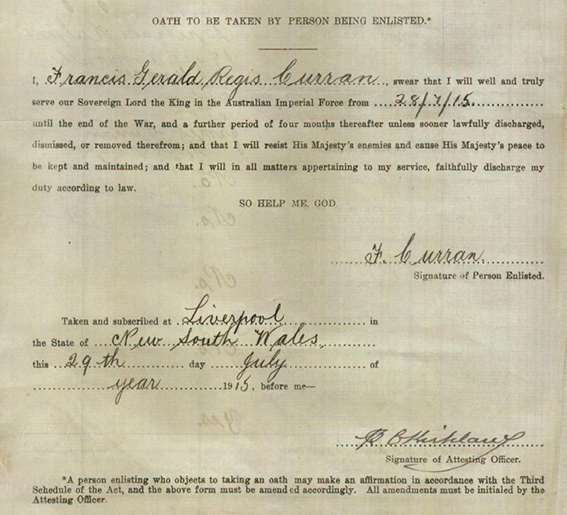 OATH TO BE TAKEN BY PERSON BEING ENLISTED.*
I, Francis Gerald Regis Curran, swear that I will well and truly
serve our Sovereign Lord the King in the Australian Imperial Force from 28/7/15.
until the end of the War, and a further period of four months thereafter unless sooner lawfully discharged,
dismissed, or removed therefrom; and that I will resist His Majesty's enemies and cause His Majesty's peace to
be kept and maintained; and that I will in all matters appertaining to my service, faithfully discharge my
duty according to law.
SO HELP ME, GOD
F. Curran
Signature of Person Enlisted.
Taken and subscribed at Liverpool in
the State of New South Wales
this 29th day July of
year 1915, before me—
Signature of Attesting Officer.
*A person enlisting who objects to taking an oath may make an affirmation in accordance with the Third
Schedule of the Act, and the above form must be amended accordingly. All amendments must be initialed by the
Attesting Officer.